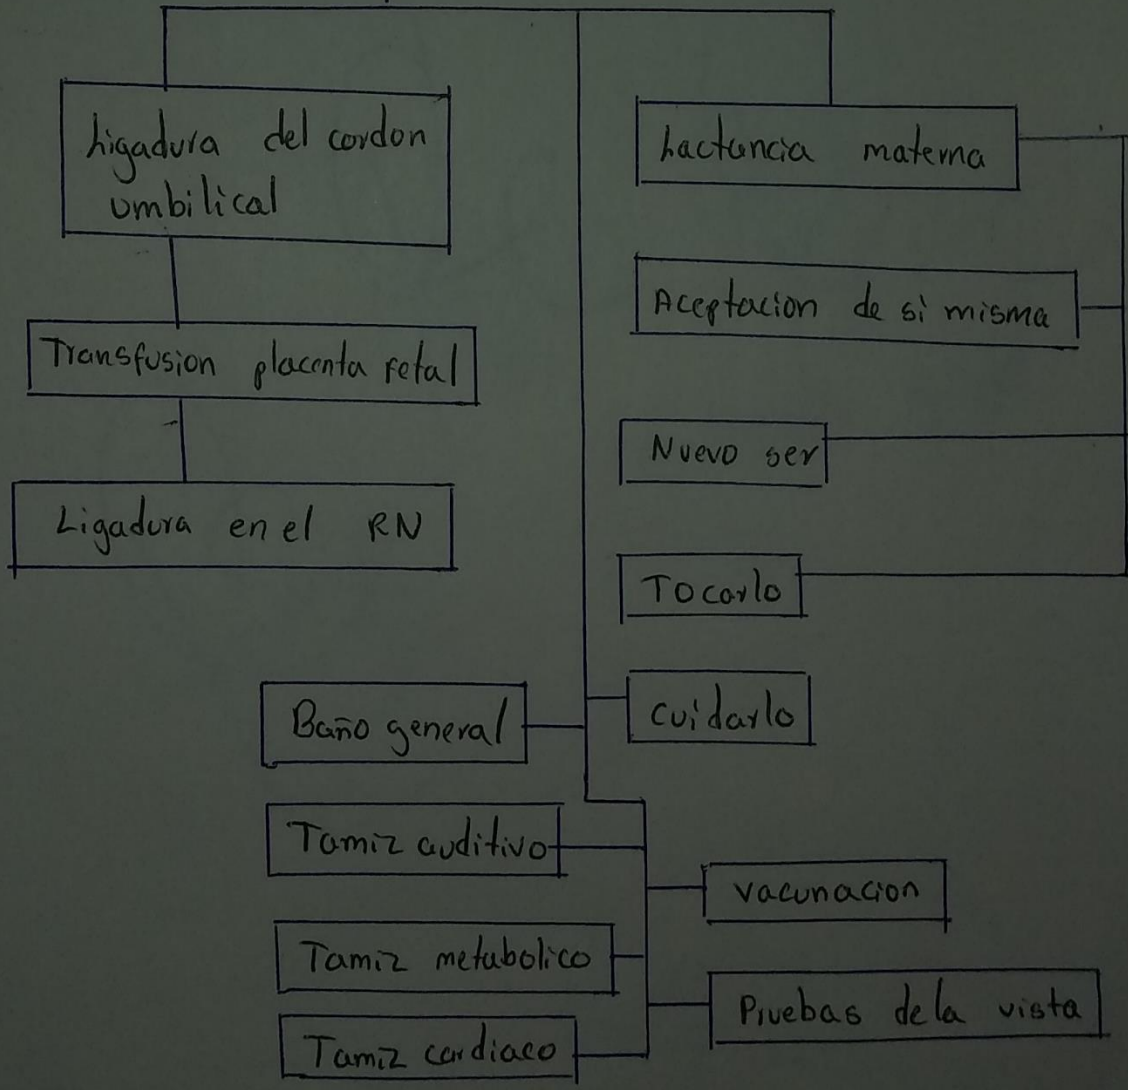 Ligadura del cordon
umbilical
Transfusion placenta fetal
Ligadura en el RN
Lactancia materna
Aceptacion de si misma
Nuevo ser
Tocarlo
cuidarlo
Baño general
Tamiz auditivo
Tamiz metabolico
Tamiz cardiaco
vacunacion
Pruebas de la vista